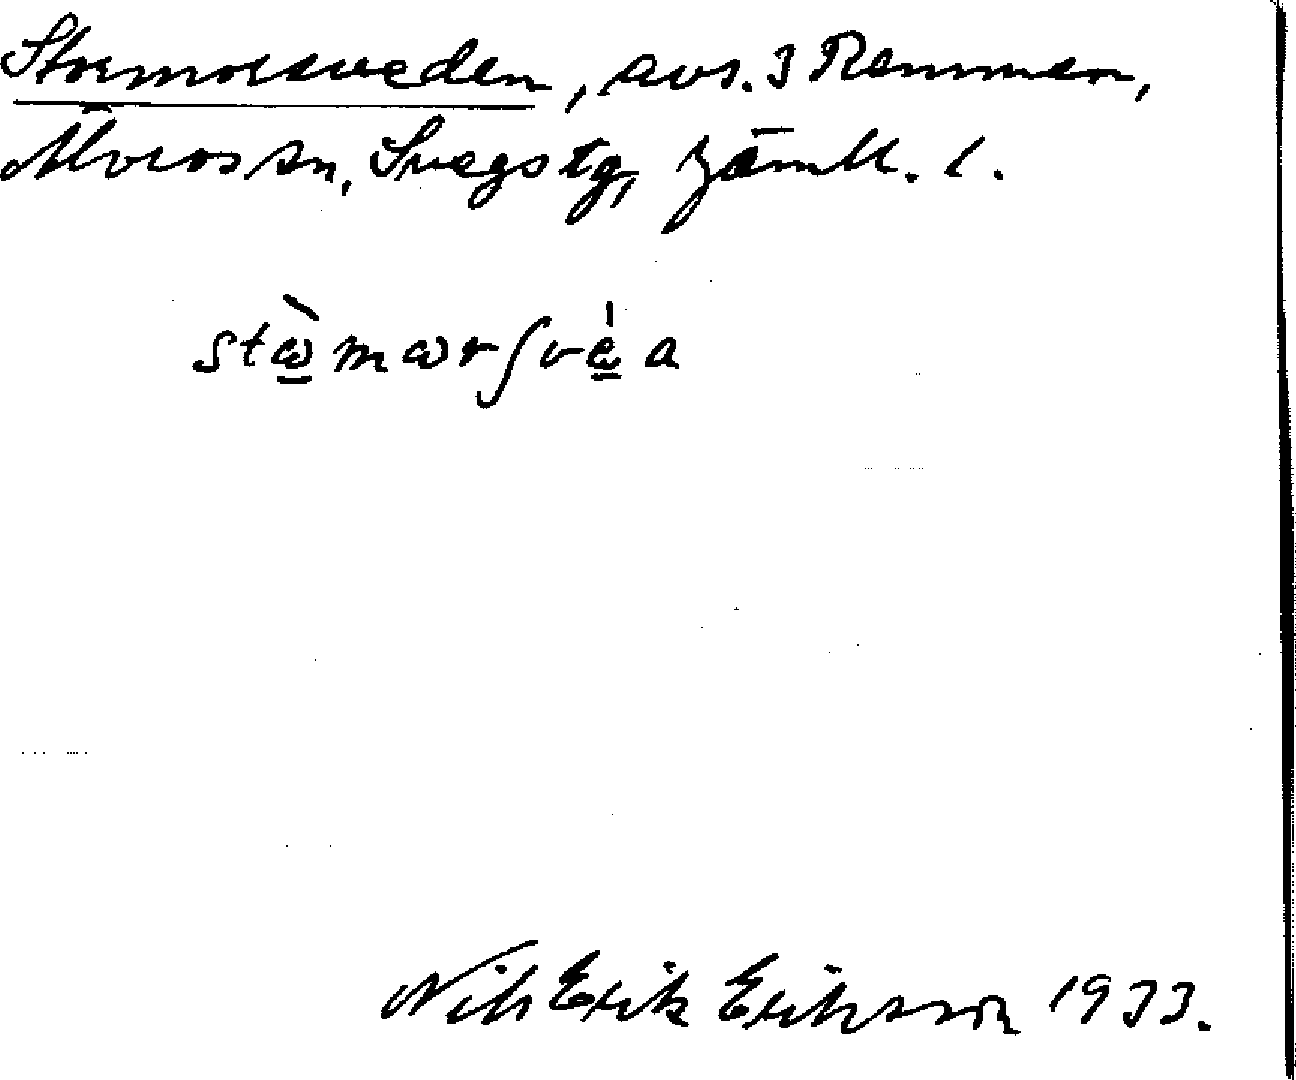 Stormorsveden, avs. 3 Remmen,
Älvros sn, Svegs tg, Jämtl. l.
stὼ̲mωrʃve̲̍a
Nils Erik Eriksson 1933.